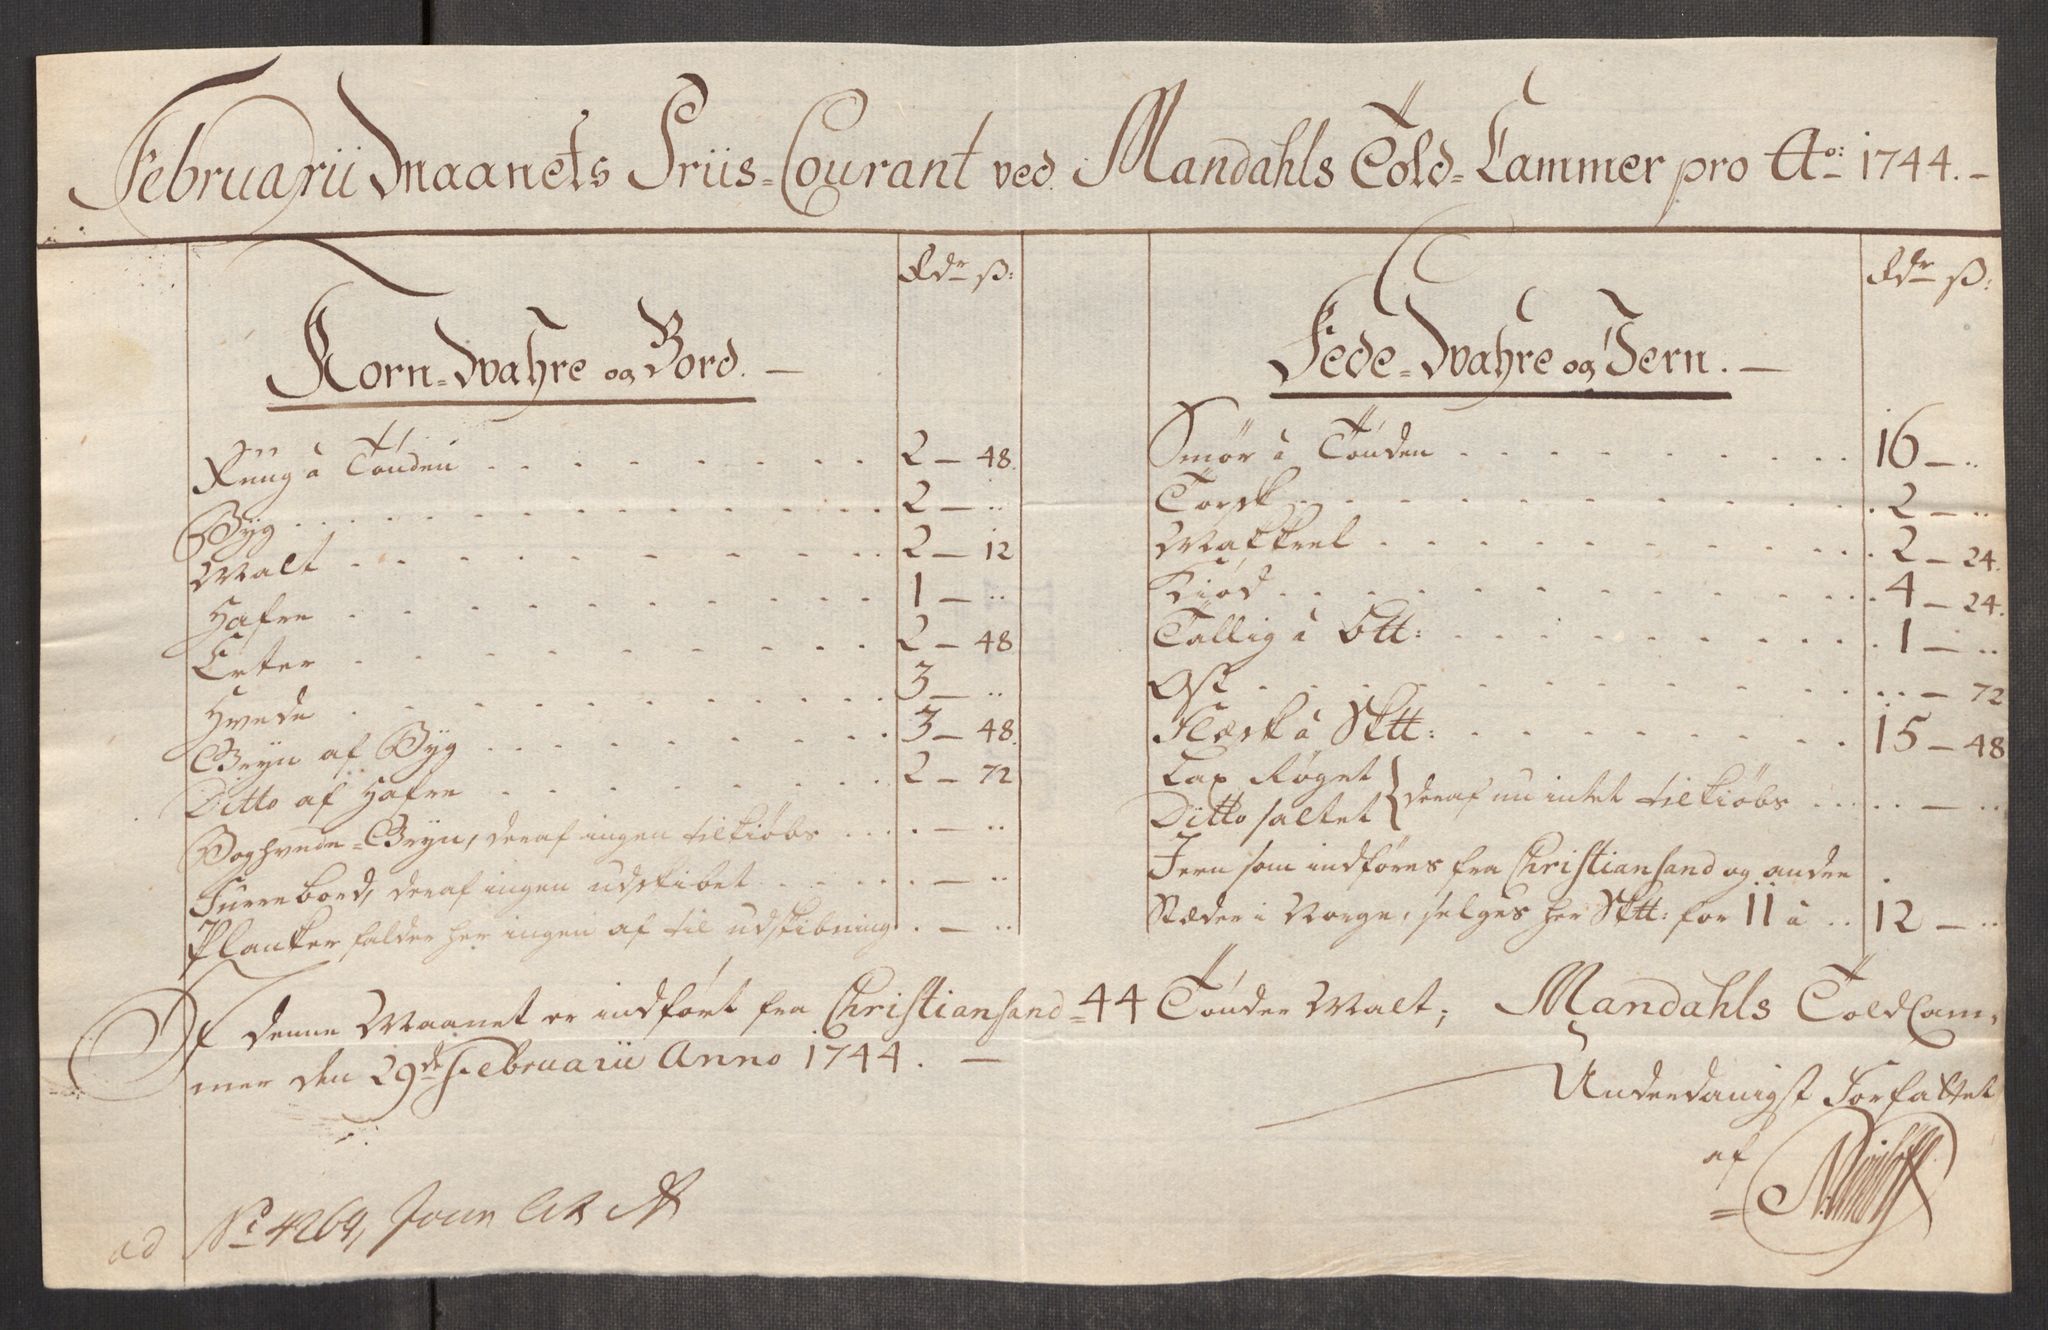 Februarii Maanets Priis-Courant ved Mandahls Told-Cammer pro Ao: 1744.
Rdr ß:
Korn-Wahre og Bord.
Rüüg â Tønden 2 - 48.
Byg 2 - ..
Malt 2 - 12
Hafre 1 - ..
Erter 2 - 48
Hvede 3 - ..
Gryn af Byg 3 - 48.
Ditto af Hafre 2 - 72
Boghvede-Gryn, deraf ingen tilkiøbs . - ..
Furrebord, deraf ingen udskibet . - ..
Planker falder her ingen af til udskibning . - ..
Rdr ß:
Fede-Wahre og Jern.
Smør â Tønden 16 - ..
Torsk 2 - ..
Makkrel 2 - 24.
Kiød 4 - 24.
Tallig â B℔: 1 - ..
Ost .. - 72
Flæsk â Sk℔: 15 - 48
Lax Røget
Ditto saltet } deraf nu intet tilkiøbs .. - ..
Jern som indføres fra Christiansand og andre
Stæder i Norge, selges her Sk℔: for 11 â 12 - ..
I denne Maanet er indført fra Christiansand - 44 Tønder Malt; Mandahls Told Cam-
mer den 29de Februarii Anno 1744.
Underdanigst Forfattet
af
ad No 4264, Journ Litr A